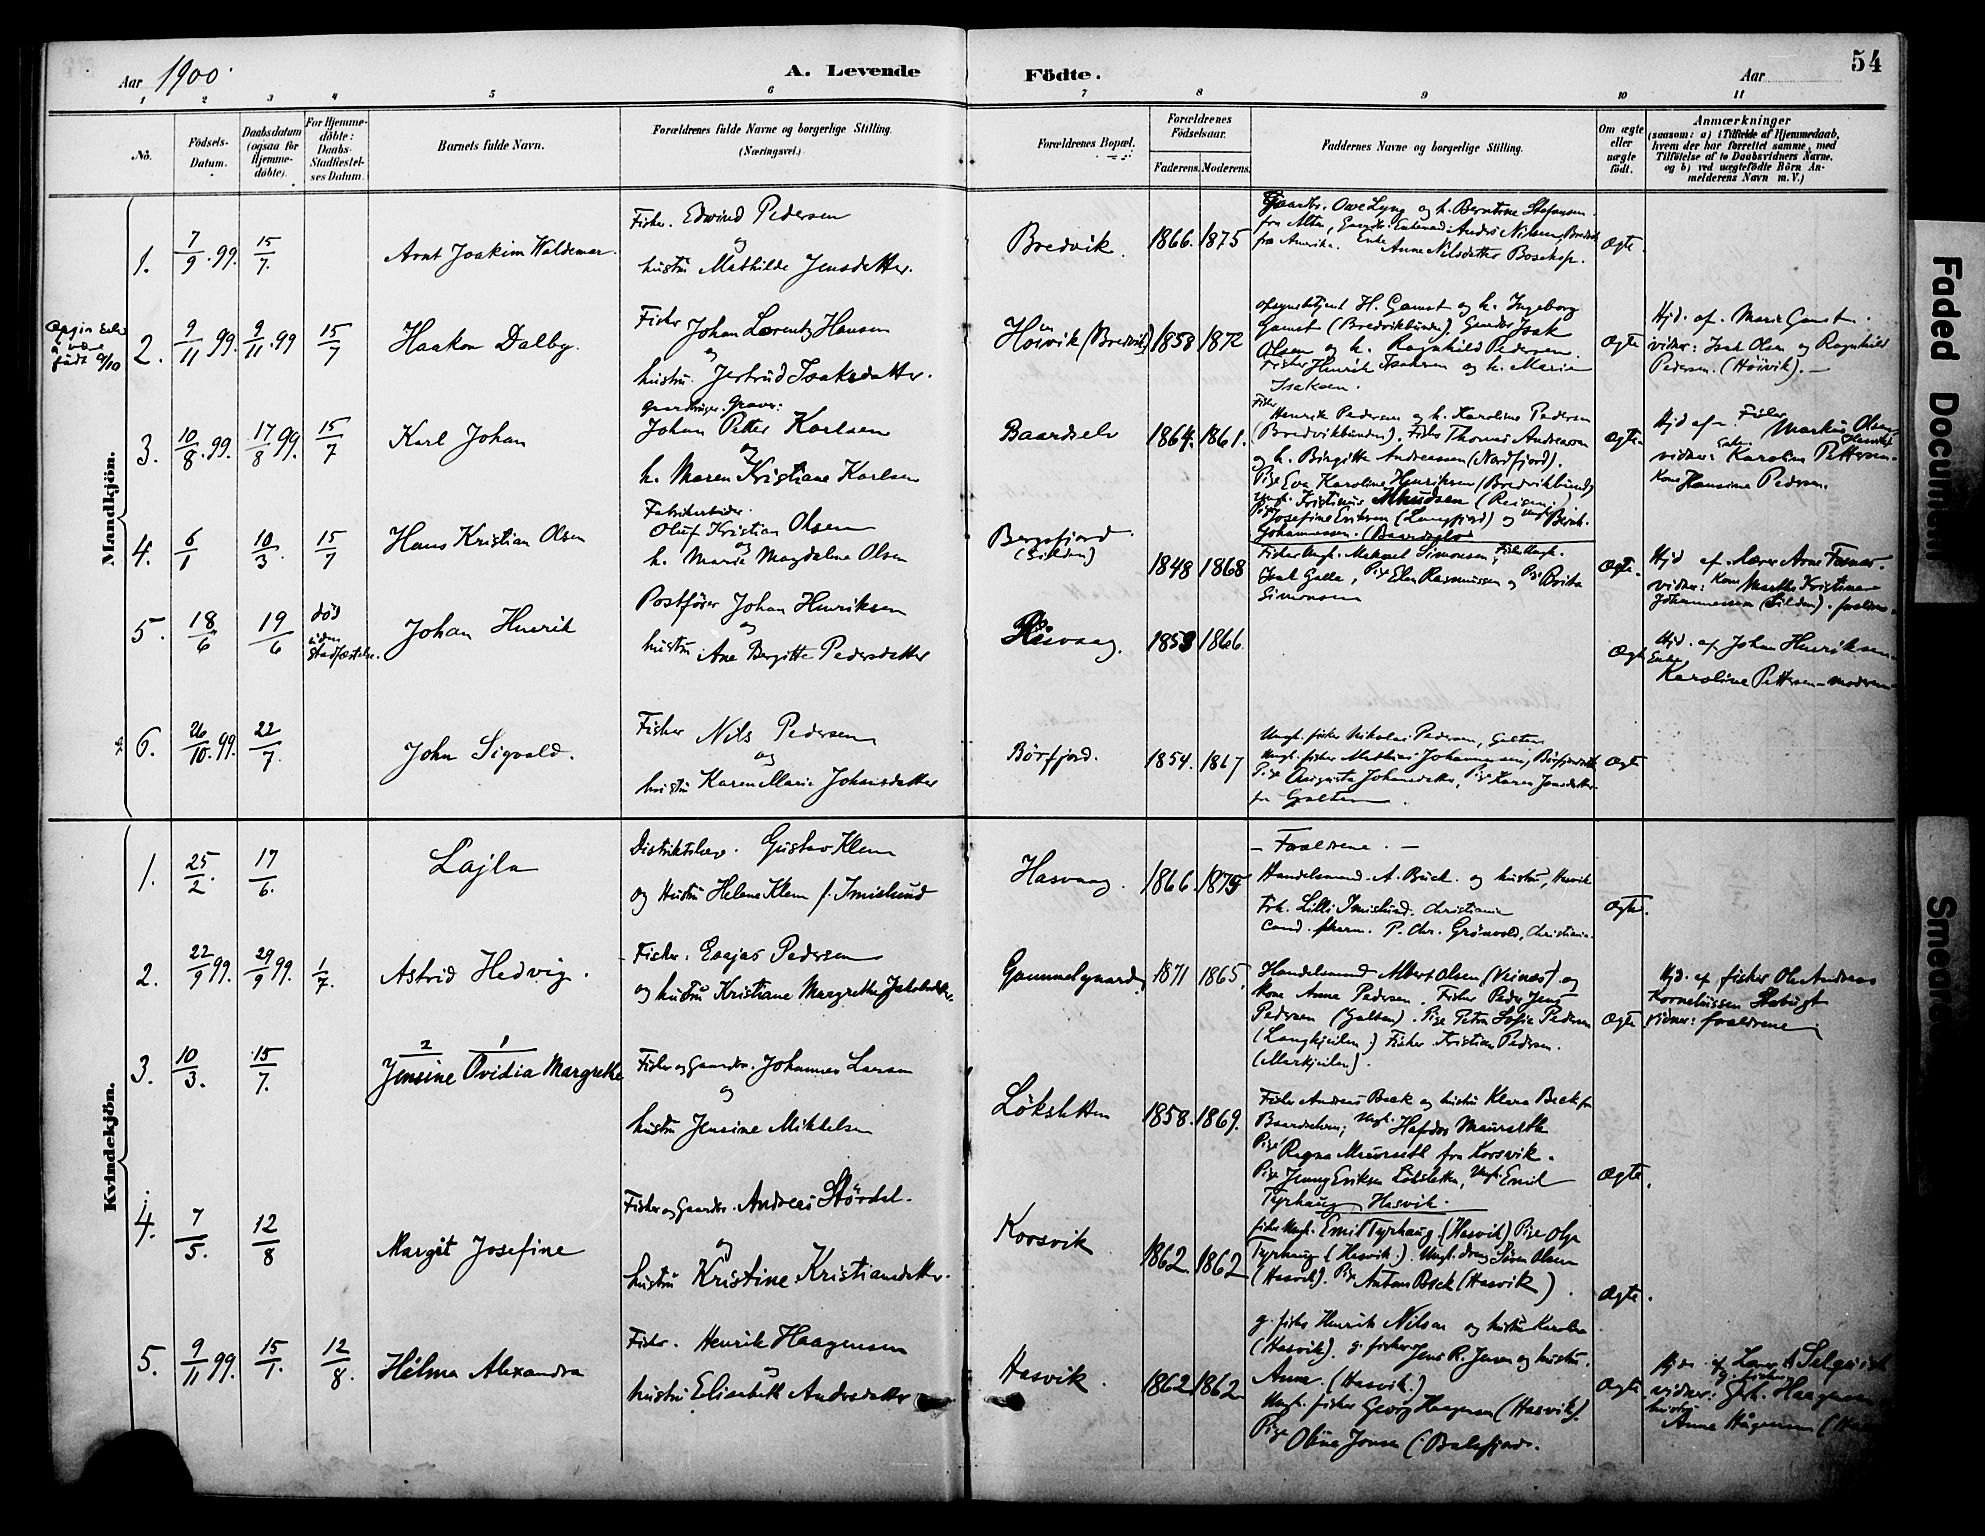 Aar 1900.
A. Levende
Födte.
Aar
54
1 2 3 4 5 6 7 8 9 10 11
No.
Födsels-
Datum.
Daabsdatum
(ogsaa for
Hjemme-
döbte).
For Hjemme-
döbte:
Daabs-
Stadfæstel-
ses Datum.
Barnets fulde Navn.
Forældrenes fulde Navne og borgerlige Stilling.
(Næringsvei.)
Forældrenes Bopæl.
Forældrenes
Födselsaar.
Faderens. Moderens.
Faddernes Navne og borgerlige Stilling.
Om ægte
eller
uægte
født.
Anmærkninger
(saasom: a) i Tilfælde af Hjemmedaab,
hvem der har forrettet samme, med
Tilføielse af to Daabsvidners Navne,
og b) ved uægtefödte Börn An-
melderens Navn m. V.)
Mandkjön.
1. 7/9 99. 15/7 Arnt Joakim Waldemar.
Fisker. Edvind Pedersen
og
hustru Mathilde Jensdatter.
Bredvik. 1866. 1875
Anne Nilsdatter Bosekop.
Ægte.
født 9/10
2. 9/11 99. 9/11 99 15/7 Haakon Dalby.
Fisker Johan Lorentz Hansen
og
hustru. Jertrud Isaksdatter.
Høivik (Bredvik) 1858 1872
H. Gamst og h. Ingeborg
Gamst (Bredvikbunden). Isak
Olsen og h. Ragnhild Pedersen.
Fisker Henrik Isaksen og h. Maria
Isaksen.
Ægte
Hjd. af. Marie Gamst.
vidner: Isak Olsen og Ragnhild
Pedersen. (Høivik).
3. 10/8 99. 17/8 99. 15/7 Karl Johan
Johan Petter Karlsen
og
h. Maren Kristiane Karlsen
Baardselv 1864. 1861.
Fisker
Henrik Pedersen og h. Karoline Pedersen
(Bredvikbunden). Fisker Thomas Andreasen
og h. Birgitte Andreassen (Nordfjord).
Pige Eva Karoline Henriksen (Bredvikbund)
Josefine Eriksen (Langfjord) og
Johannessen. (Baardselv)
Ægte.
Hjd af Fisker Markus Olsen
vidner: Karoline Pettersen
Kone Hansine Pedersen.
4. 6/1 10/3. 15/7 Hans Kristian Olsen
Fabrikarbeider.
Oluf Kristian Olsen
og
h. Marie Magdalene Olsen
Bergsfjord
(Silden)
1848 1868
Simonsen,
Isak Galla, Pige Elen Rasmussen og Pige Brita
Simonsen
Ægte.
Hjd af Lærer Arne
vidner: Kone Marthe Kristine
Johannessen (Silden).
5. 18/6 19/6 død
uden
stadfæstelse.
Johan Henrik
Postfører Johan Henriksen
og
hustru Ane Bergitte Pedersdatter
Hasvaag. 1853 1866.
Ægte
Hjd. af Johan Henriksen
Enke
Karoline Pettersen
6. 26/10 99. 22/7. John Sigvald.
Fisker Nils Pedersen
og
hustru Karen Marie Johansdatter
Børfjord. 1854. 1867
Ungk. fisker Nikolai Pedersen, Galten
Ungk. fisker Mathias Johannessen, Børfjord
Pige Augusta Johansdatter, Pige Karen Jonsdatter
fra Galten.
Ægte
Kvindekjön.
1. 25/2. 17/6. Lajla
Distriktslæge. Gustav Klem
og Hustru Helene Klem f. Imislund
Hasvaag. 1866. 1875
- Forældrene. -
Handelsmand. A. Buck. og hustru, Hasvik
Frk. Lilli Imislund. Christiania
cand. pharm. P. Chr. Grönvold, Christiania.
Ægte.
2. 22/9 99. 29/9 99. 1/7. Astrid Hedvig.
Fisker. Esajas Pedersen
og hustru Kristiane Margrethe Jakobsdatter
Gammelgaard. 1871 1865.
Handelsmand Albert Olsen (Veines) og
Kone Anne Pedersen. Fisker Peder Jens
Pedersen (Galten). Pige Petra Sofie Pedersen
(Langkjeilen.) Fisker Kristian Pedersen.
(Markjeilen).
Ægte
Hjd. af fisker Ole Andreas
Kornelussen
vidner: forældrene
3. 10/3. 15/7. 2 1
Jensine Ovidia Margrethe
Fisker og Gaardbr. Johannes Larsen
og
hustru Jensine Mikkelsen
Lökslettan 1858. 1869.
Fisker Andreas Beck og hustru Klara Beck fra
Baardselven; Ungk.
Pige Ragna fra Korsvik.
Pige Jenny Eriksen Löksletten, Ungk. Emil
Tyrhaug Hasvik.
Ægte.
4. 7/5. 12/8 Margit Josefine
Fisker og Gaardbr. Andreas Stördal.
og
hustru Kristine Kristiansdatter.
Korsvik 1862. 1862
fisker Ungk. Emil Tyrhaug. (Hasvik) Pige Olga
Tyrhaug (Hasvik.) Ungk. dreng Sören Olsen
(Hasvik). Pige Anton Beck (Hasvik).
Ægte.
5. 9/11 99. 15/1. 12/8. Hilma Alexandra
Fisker. Henrik Haagensen
og
hustru Elisabeth Andersdatter
Hasvik. 1862 1862
g. fisker Henrik Nilsen og hustru Karolen
(Hasvik). g. fisker Jens R. Jensen og hustru.
Anne. (Hasvik.)
Ungk. fisker Georg Haagensen (Hasvik).
Pige Oline Jonsen (Balsfjord.
Ægte
Hjd. af Lærer A Selqvist
vidner: Haagensen
hustru
Anne Hågensen (Ha
Faded Document
Smeared